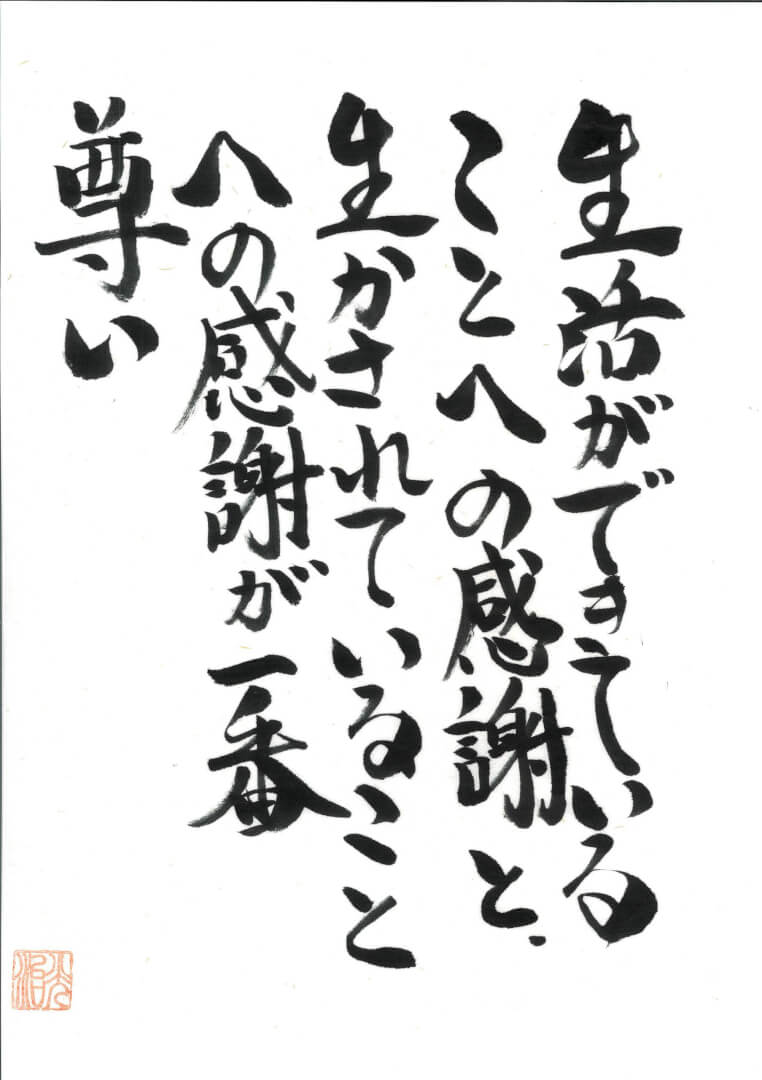 生活ができている
ことへの感謝と、
生かされていること
への感謝が一番
尊い